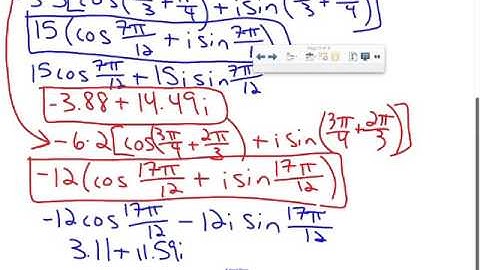 5·3[cos(π/3 + π/4) + i sin(π/3 + π/4)]
15(cos 7π/12 + i sin 7π/12)
15 cos 7π/12 + 15i sin 7π/12
-3.88 + 14.49i
-6·2[cos(3π/4 + 2π/3) + i sin(3π/4 + 2π/3)]
-12(cos 17π/12 + i sin 17π/12)
-12 cos 17π/12 - 12i sin 17π/12
3.11 + 11.59i